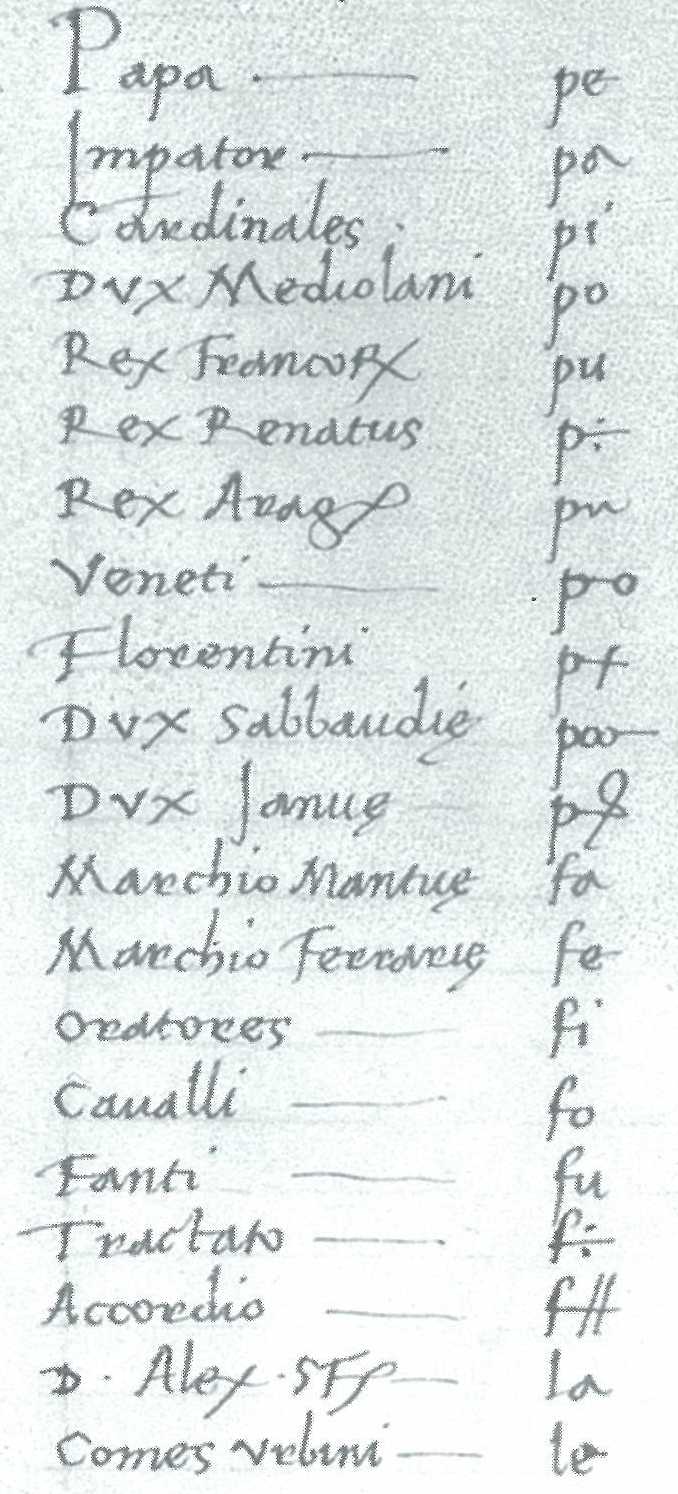 Papa pe
Impatore pa
Cardinales pi
Dvx Mediolani po
Rex Francoꝝ pu
Rex Renatus
Rex Arag
Veneti
Florentini
Dvx Sabbaudię
Dvx Januę
Marchio Mantuę fa
Marchio Ferrarię fe
Oratores fi
Caualli fo
Fanti fu
Tractato
Accordio
D. Alex. Sf
Comes Vrbini le